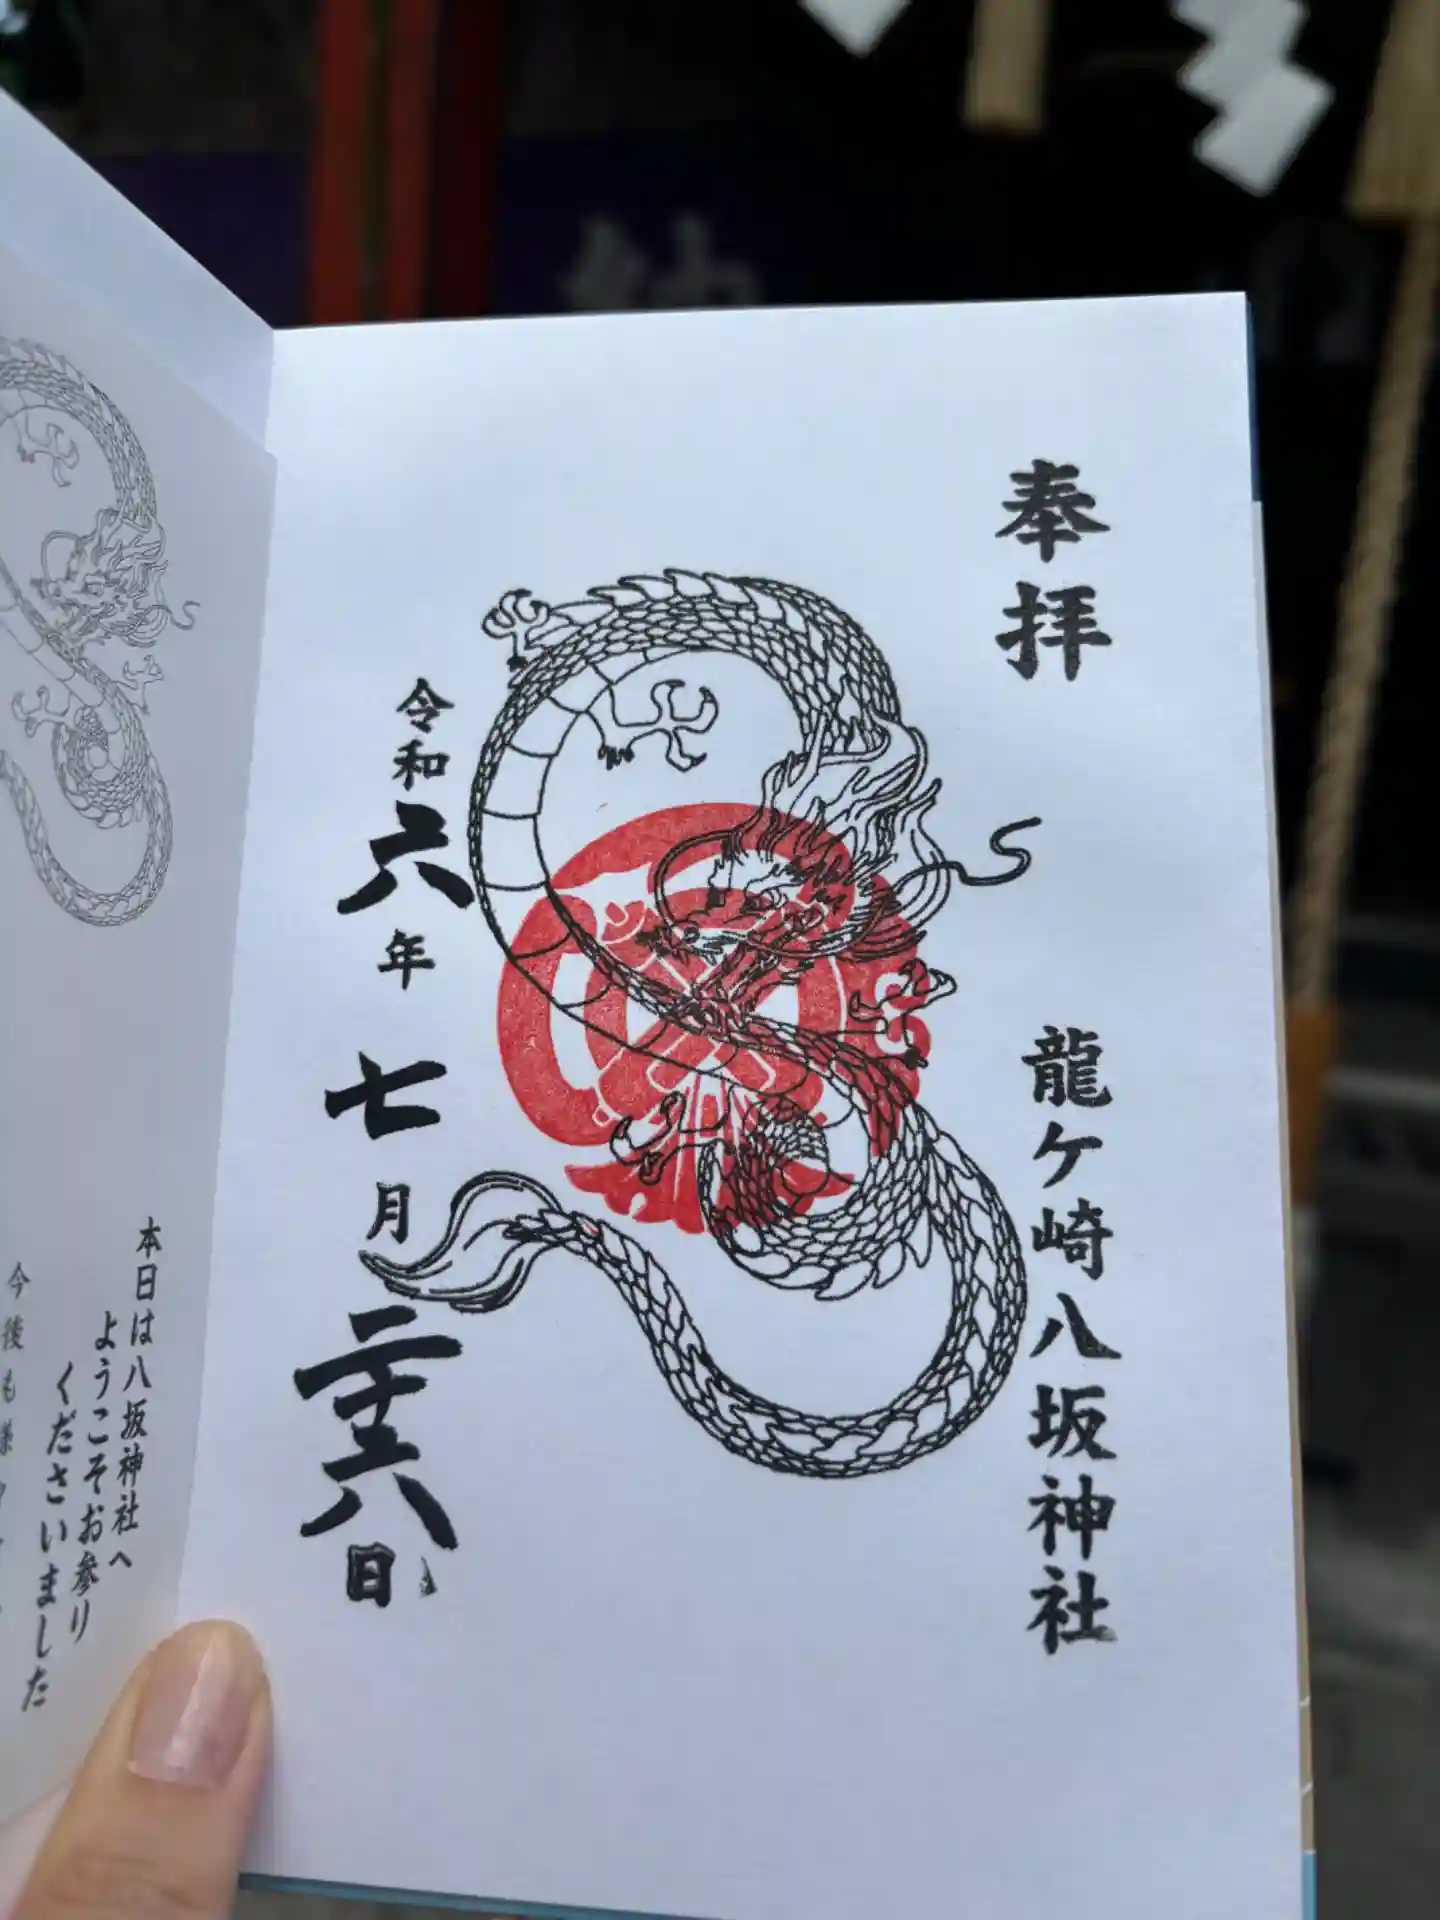 奉拝
龍ケ崎八坂神社
令和六年七月二十六日
本日は八坂神社へ
ようこそお参り
くださいました
今後も